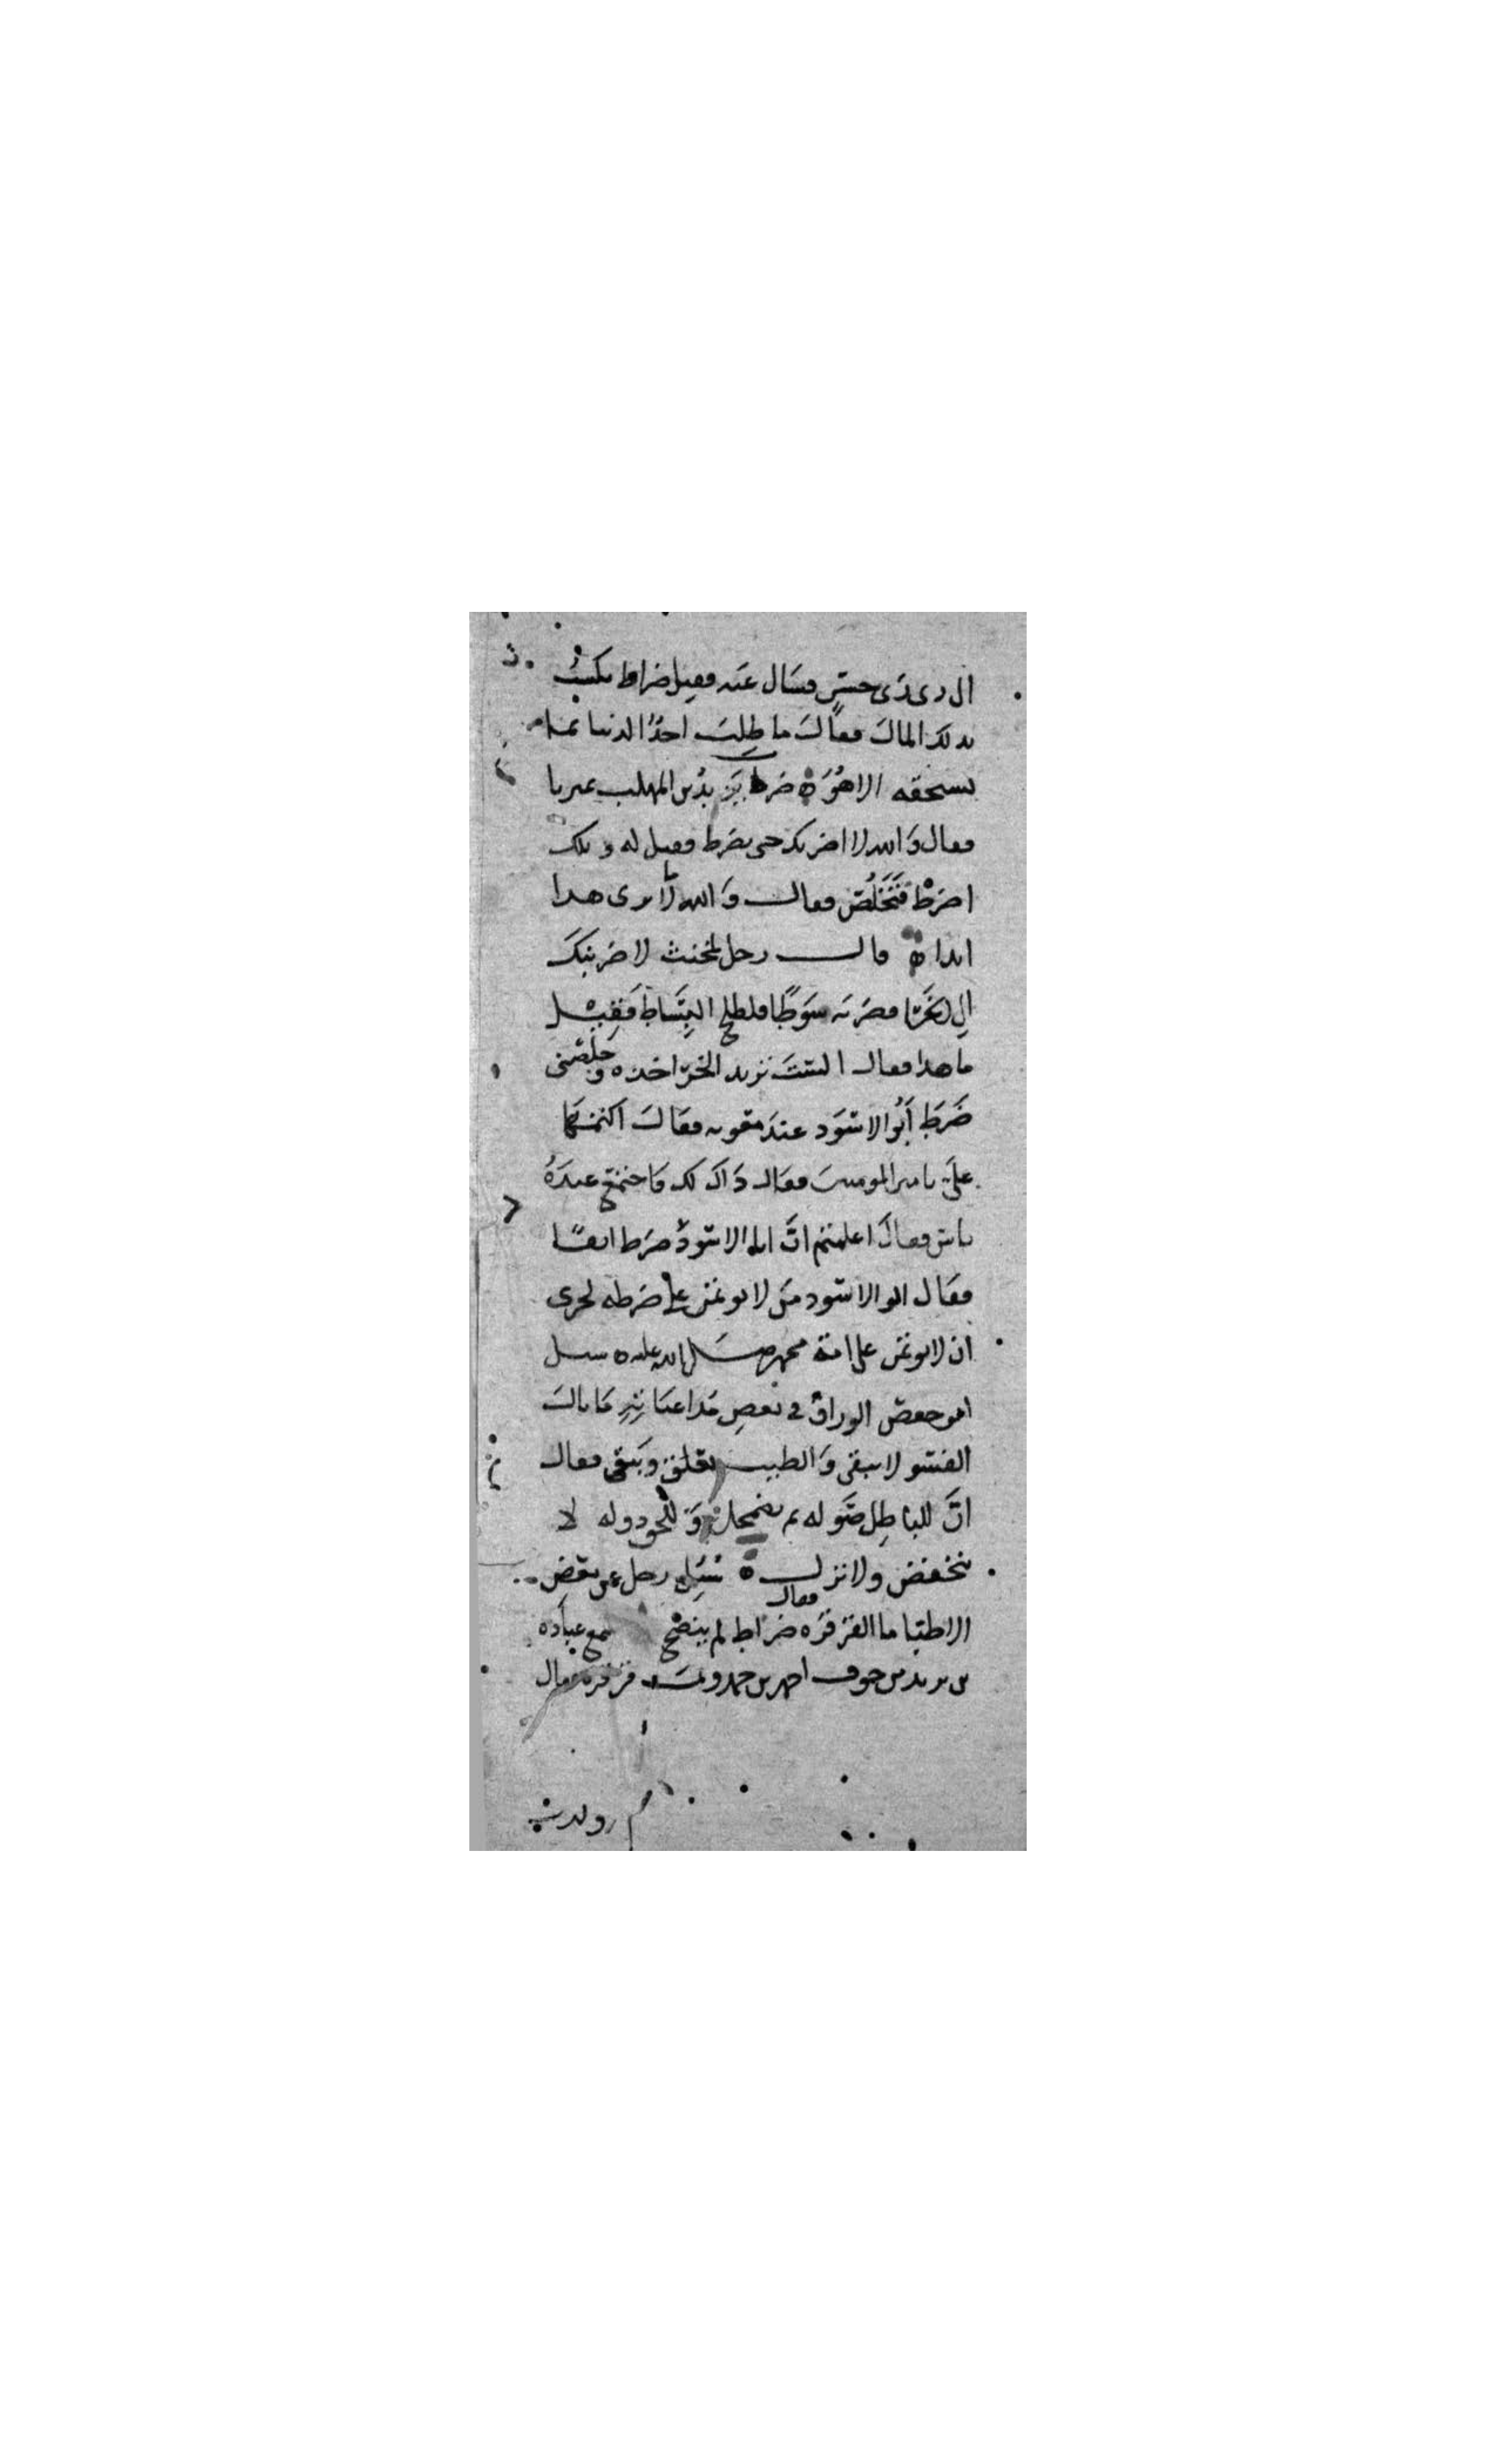 الى ذى زى حسن فسال عنه فقيل ضراط يكسب
بذلك المال فقال ما طلب احد الدنيا بما
يستحقه الا هو ه ضرط يزيد بن المهلب عيريا
فقال والله لا اضربك حتى تضرط فقيل له ويلك
اضرط فتخلص فقال والله لا يرى هذا
ابدا ه قال رجل لمخنث لاضربنك
الى الخرا فضربه سوطا فلطخ البساط فقيل
ما هذا فقال الست تريد الخرا خذه وخلصنى
ضرط ابو الاسود عند معوية فقال اكتمها
على يامير المومنين فقال ذاك لك فاجتمع عنده
ناس فقال اعلمتم ان ابا الاسود ضرط انفا
فقال ابو الاسود من لا يوتمن على ضرطه لحرى
ان لا يوتمن على امة محمد صلى الله عليه ه سيل
ابو جعفر الوراق فى بعض مداعباته ما بال
الفسو لا يبقى والطيب يعلق ويبقى فقال
ان للباطل صوله ثم يضمحل وللحق دوله لا
تنخفض ولا تزل ه سيل رجل عن بعض
الاطبا ما القرقره فقال ضراط لم ينضج سمع عباده
من جوف احمد بن حمدون قرقره فقال